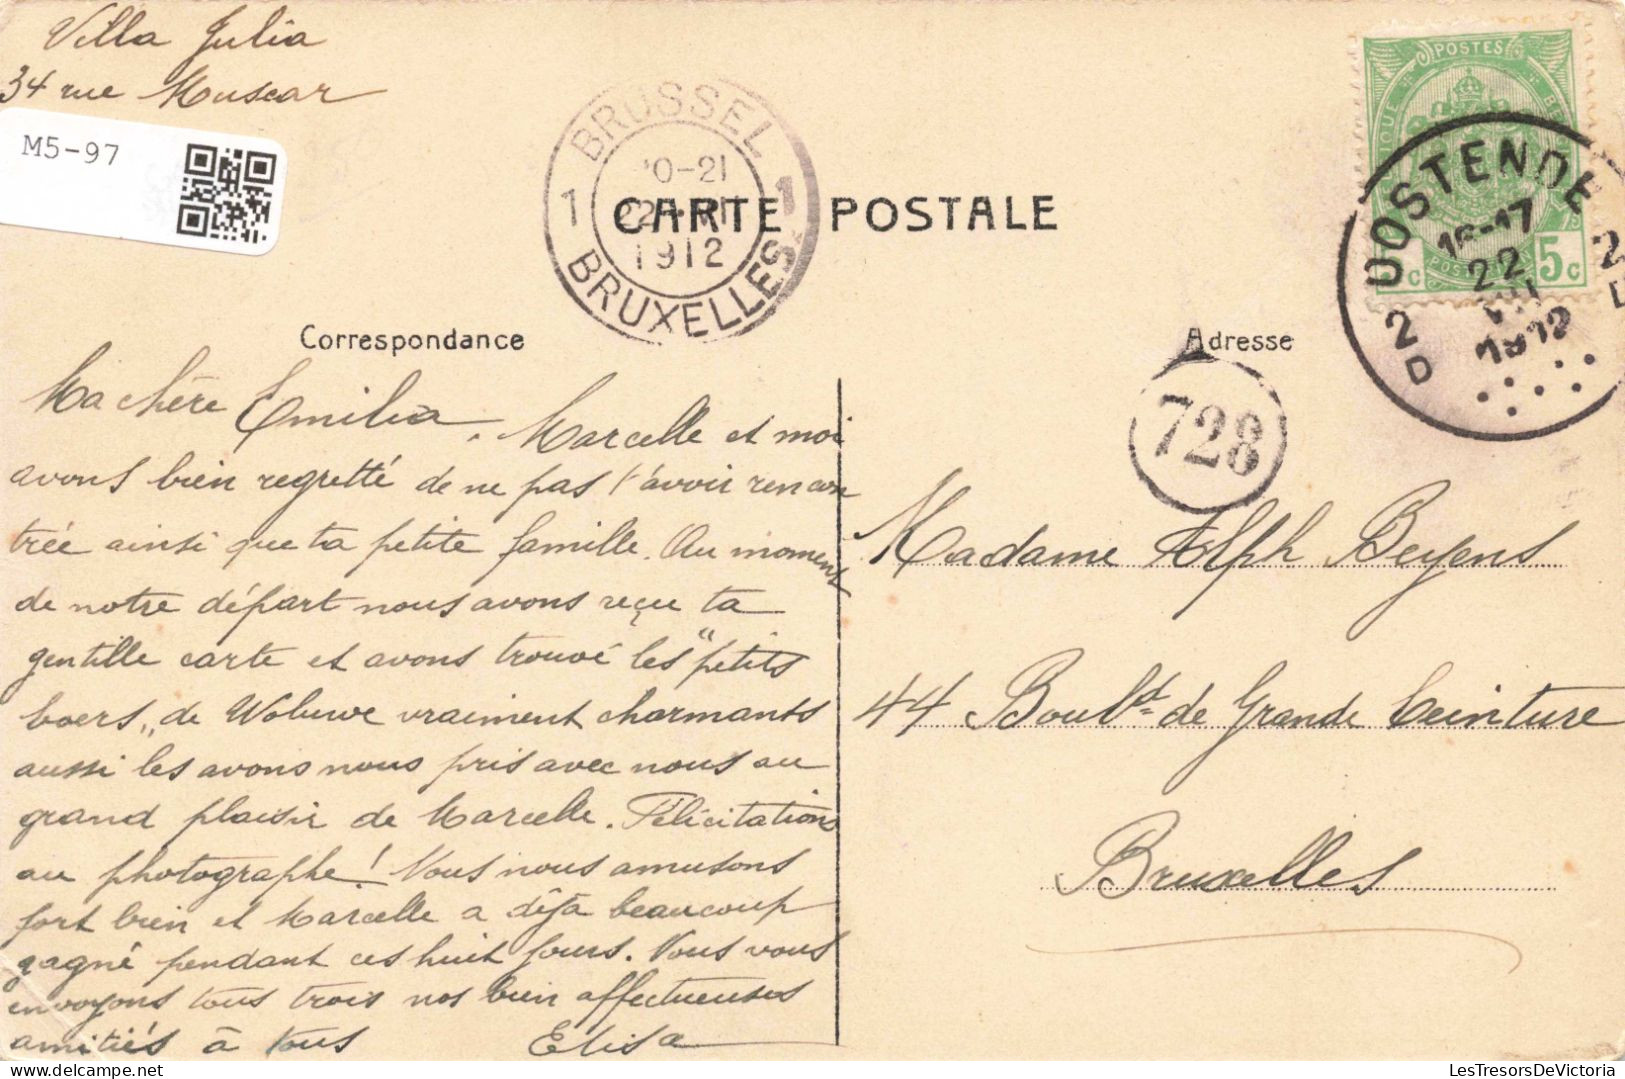 Villa Julia
34 rue Muscar
M5-97
BRUSSEL
0-21
22
1912
1 1
BRUXELLES
CARTE POSTALE
POSTES
5c
OOSTENDE
16-17
22
1912
2 D
Correspondance
Adresse
728
Ma chère Emilia, Marcelle et moi
avons bien regretté de ne pas t'avoir rencon
trée ainsi que ta petite famille. Au moment
de notre départ nous avons reçu ta
gentille carte et avons trouvé les "petits
boers„ de Woluwe vraiment charmants
aussi les avons nous pris avec nous au
grand plaisir de Marcelle. Félicitations
au photographe! Nous nous amusons
fort bien et Marcelle a déjà beaucoup
gagné pendant ces huit jours. Nous vous
envoyons tous trois nos bien affectueuses
amitiés à tous Elisa
Madame Alph Beyens
44 Boulᵈ de Grande Ceinture
Bruxelles
LesTresorsDeVictoria